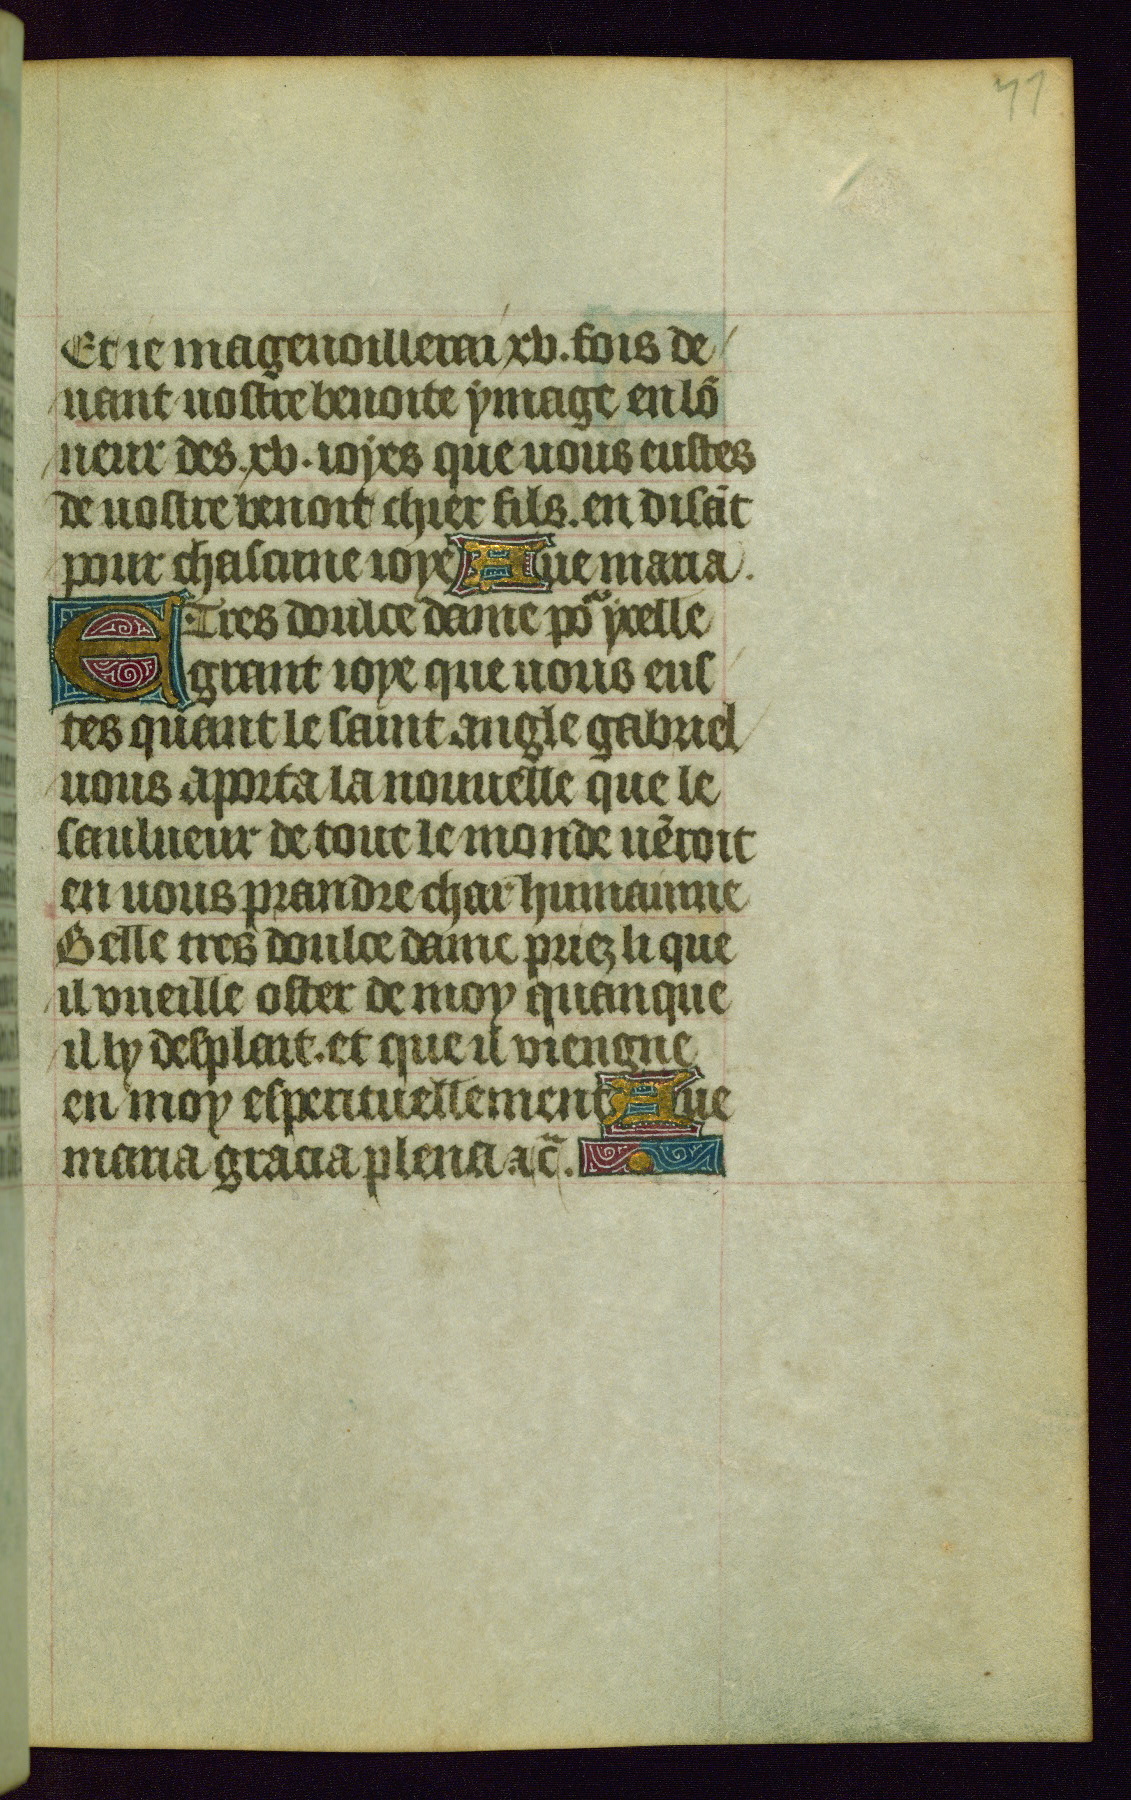 71
Et ie magenoillerai xv. fois de
uant uostre benoite ymage en lõ
neur des .xv. ioyes que uous eustes
de uostre benoit chier fils. en disãt
pour chascune ioye Aue maria.
E Tres doulce dame poᵃ ycelle
grant ioye que uous eus
tes quant le saint angle gabriel
uous aporta la nouuelle que le
saulueur de tout le monde uẽroit
en uous prandre char humainne
Belle tres doulce dame priez li que
il vueille oster de moy quanque
il ly desplait. et que il viengne
en moy esperituellement Aue
maria gracia plena ⁊c̃.